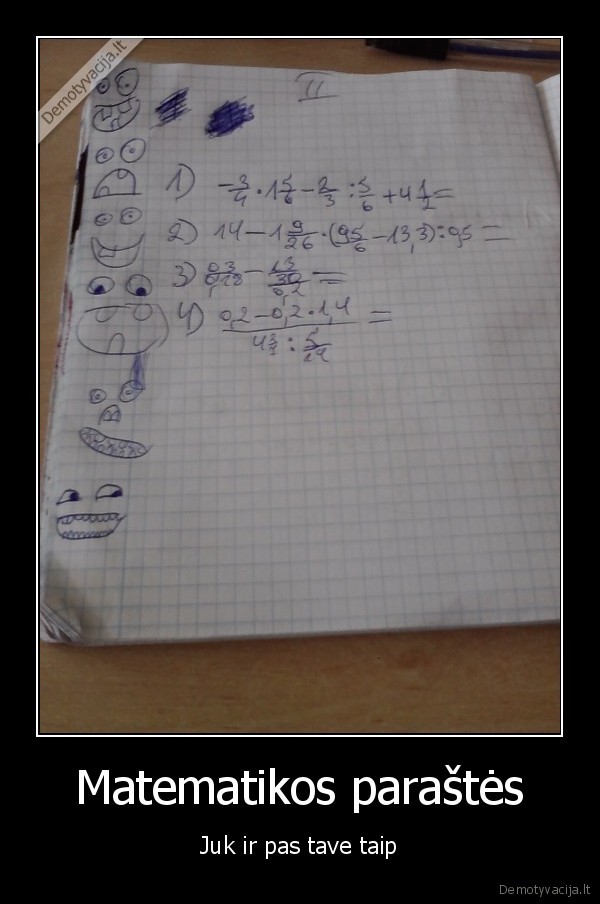 Demotyvacija.lt
II
1) -3/4 · 1 5/6 - 2/3 : 5/6 + 4 1/2 =
2) 14 - 1 9/26 · (9 5/6 - 13,3) : 0,5 =
3) 0,3/0,18 - =
4) 0,2 - 0,2 · 1,4 / : 5/14 =
Matematikos paraštės
Juk ir pas tave taip
Demotyvacija.lt